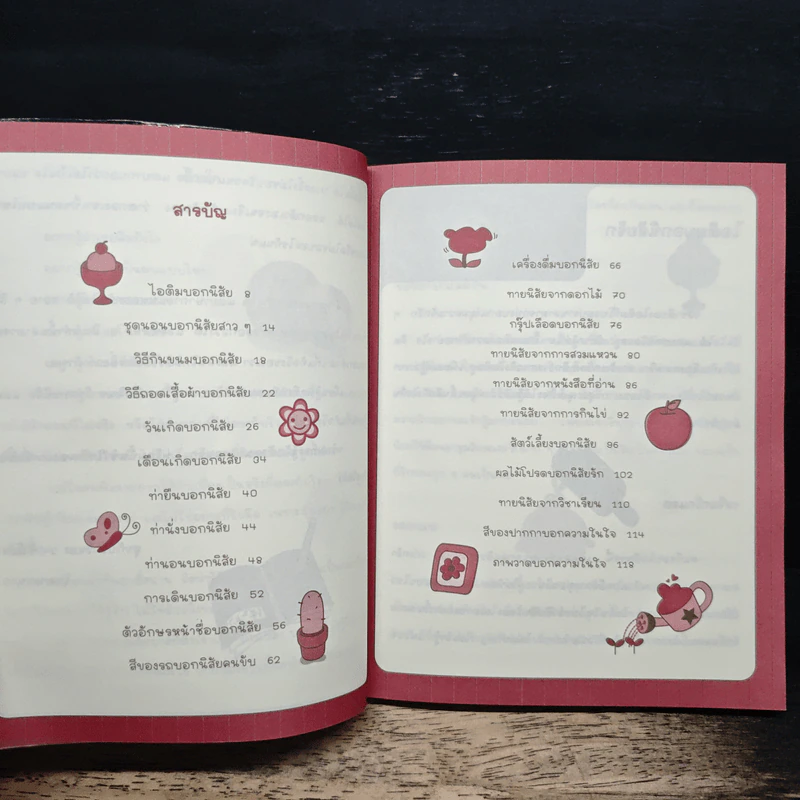 สารบัญ
ไอติมบอกนิสัย 8
ชุดนอนบอกนิสัยสาว ๆ 14
วิธีกินขนมบอกนิสัย 18
วิธีถอดเสื้อผ้าบอกนิสัย 22
วันเกิดบอกนิสัย 26
เดือนเกิดบอกนิสัย 34
ท่ายืนบอกนิสัย 40
ท่านั่งบอกนิสัย 44
ท่านอนบอกนิสัย 48
การเดินบอกนิสัย 52
ตัวอักษรหน้าชื่อบอกนิสัย 56
สีของรถบอกนิสัยคนขับ 62
เครื่องดื่มบอกนิสัย 66
ทายนิสัยจากดอกไม้ 70
กรุ๊ปเลือดบอกนิสัย 76
ทายนิสัยจากการสวมแหวน 80
ทายนิสัยจากหนังสือที่อ่าน 86
ทายนิสัยจากการกินไข่ 92
สัตว์เลี้ยงบอกนิสัย 96
ผลไม้โปรดบอกนิสัยรัก 102
ทายนิสัยจากวิชาเรียน 110
สีของปากกาบอกความในใจ 114
ภาพวาดบอกความในใจ 118